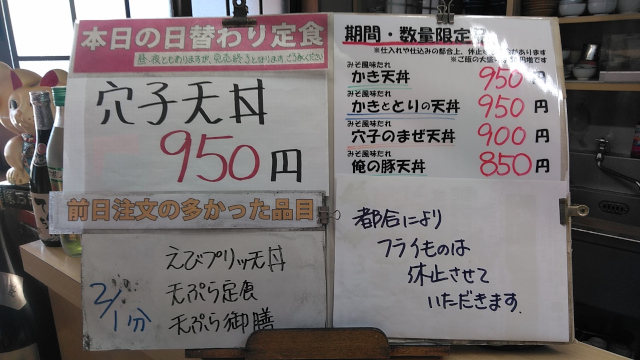 本日の日替わり定食
昼・夜ともありますが、売切終了となります。ご了承ください
穴子天丼
950円
前日注文の多かった品目
2/1分
えびプリッ天丼
天ぷら定食
天ぷら御膳
期間・数量限定
※仕入れや仕込みの都合上、休止
があります
※ご飯の大盛
円増です
みそ風味たれ
かき天丼 950円
みそ風味たれ
かきととりの天丼 950円
みそ風味たれ
穴子のまぜ天丼 900円
みそ風味たれ
俺の豚天丼 850円
都合により
フライものは
休止させて
いただきます。